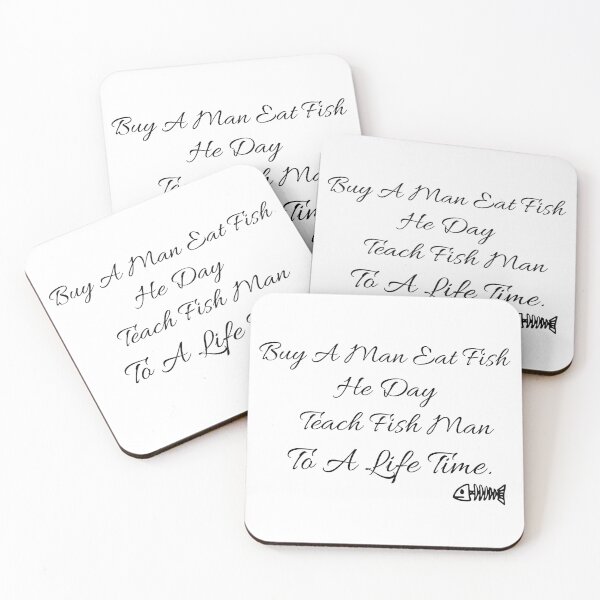 Buy A Man Eat Fish
He Day
To
Buy A Man Eat Fish
He Day
Teach Fish Man
To A Life Time.
Buy A Man Eat Fish
He Day
Teach Fish Man
To A Life
Buy A Man Eat Fish
He Day
Teach Fish Man
To A Life Time.